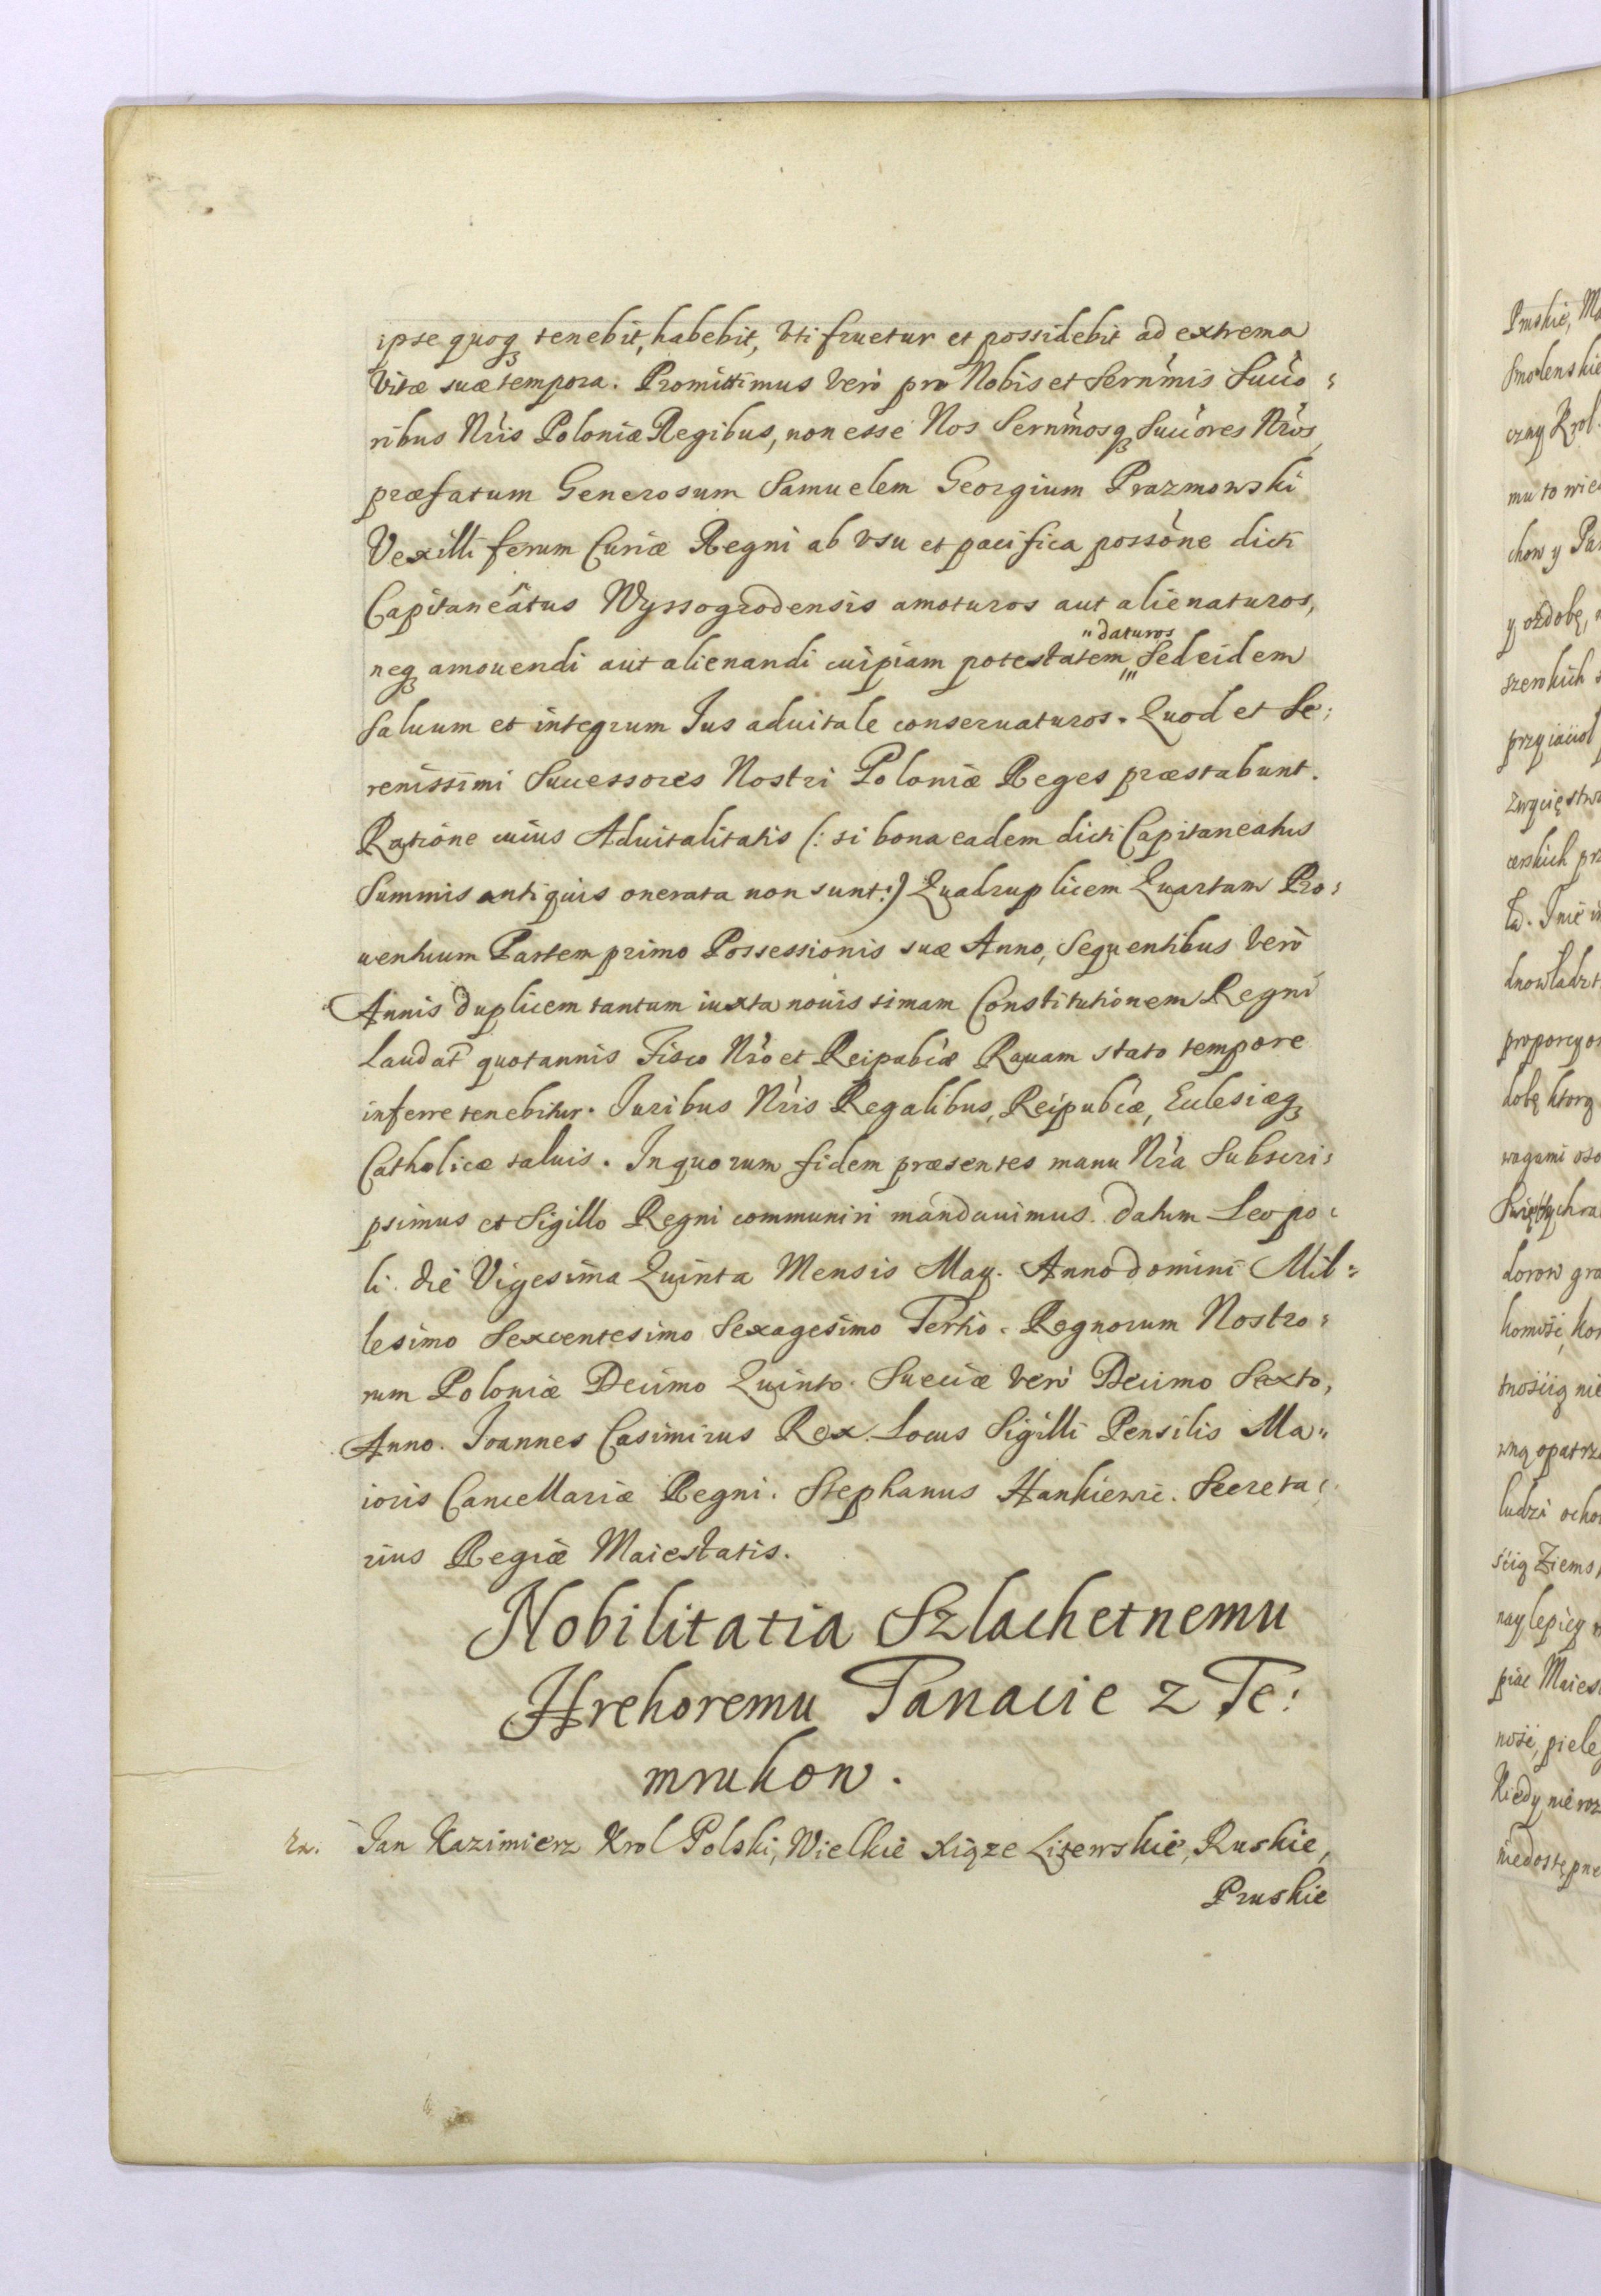 ipse quoq tenebit, habebit, vti fruetur et possidebit ad extrema
Vitæ suæ tempora. Promittimus verò pro Nobis et Sernmis Succo:
ribus Nris Poloniæ Regibus, non esse Nos Sernmosq Succores Nros,
præfatum Generosum Samuelem Georgium Prazmowski
Vexilliferum Curiæ Regni ab vsu et pacifica possone dicti
Capitaneatus Wyssogrodensis amoturos aut alienaturos,
"daturos
neq amouendi aut alienandi cuipiam potestatem "' Sed eidem
saluum et integrum Ius aduitale conseruaturos. Quod et Se:
renissimi Successores Nostri Poloniæ Reges præstabunt.
Ratione cuius Aduitalitatis (: si bona eadem dicti Capitaneatus
Summis antiquis onerata non sunt:) Quadruplicem Quartam Pro:
uentuum Partem primo Possessionis suæ Anno, Sequentibus verò
Annis duplicem tantum iuxta nouissimam Constitutionem Regni
Laudat quotannis Fisco Nro et Reipublcæ Rauam stato tempore
inferre tenebitur. Iuribus Nris Regalibus, Reipublcæ, Ecclesiæq
Catholicæ saluis. In quorum fidem præsentes manu Nra Subscri:
psimus et Sigillo Regni communiri mandauimus. Datum Leopo:
li. die Vigesima Quinta Mensis May. Anno domini Mil:
lesimo Sexcentesimo Sexagesimo Tertio. Regnorum Nostro:
rum Poloniæ Decimo Quinto. Sueciæ verò Decimo Sexto,
Anno. Ioannes Casimirus Rex. Locus Sigilli Pensilis Ma:
ioris Cancellariæ Regni. Stephanus Hankiewic. Secreta:
rius Regiæ Maiestatis.
Nobilitatia Szlachetnemu
Hrehoremu Tanacie z Te:
mrukow.
Jan Kazimierz Krol Polski, Wielkie Xiąze Litewskie, Ruskie,
Pruskie
Pruskie,
czny Krol
mu to
chow y
y ozdobę,
szerokich
przyiaciol
zwycięstw
dobę ktorą
Maies
ludzi
Kiedy nie
niedostępne